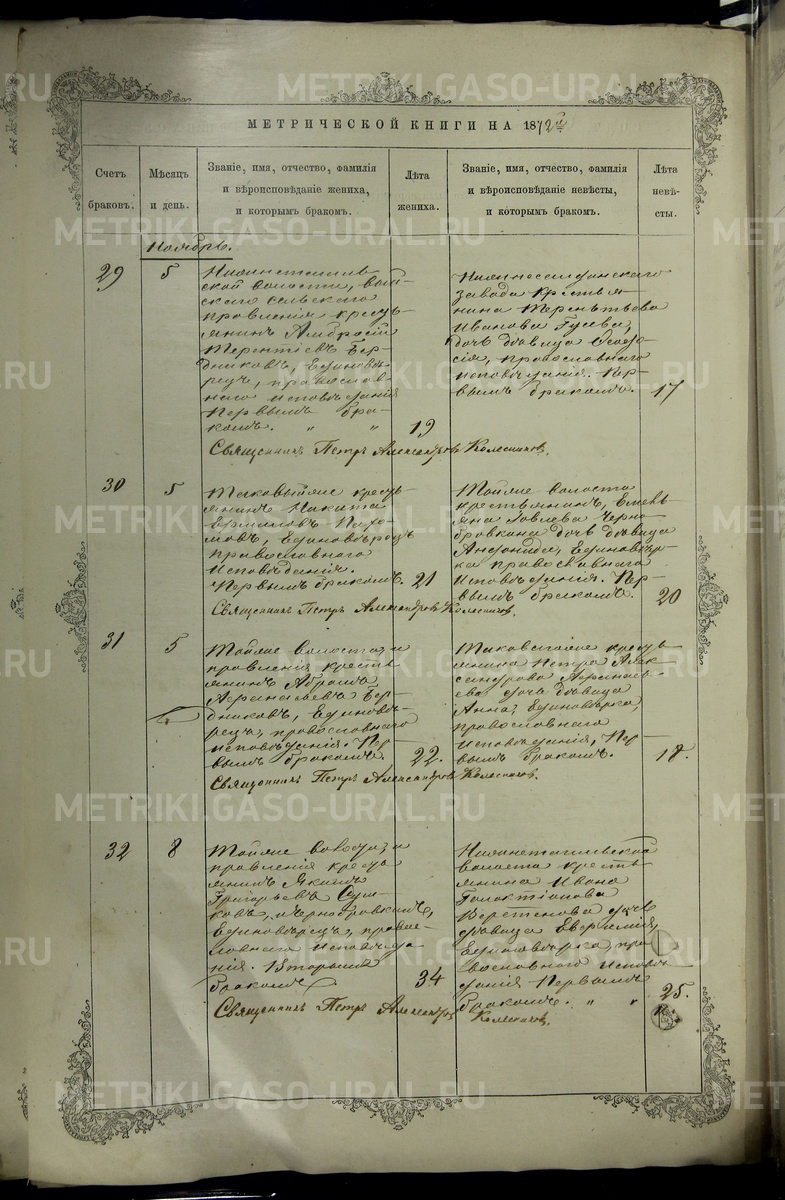 МЕТРИЧЕСКОЙ КНИГИ НА 1872
Счетъ
браковъ.
Мѣсяцъ
и день.
Званіе, имя, отчество, фамилія
и вѣроисповѣданіе жениха,
и которымъ бракомъ.
Лѣта
жениха.
Званіе, имя, отчество, фамилія
и вѣроисповѣданіе невѣсты,
и которымъ бракомъ.
Лѣта
невѣ-
сты.
Ноябрь.
29
5
Нижнетагиль
ской волости, Вый-
скаго сельскаго
правленія кресть
янинъ Амбросій
Терентіевъ Бер-
дниковъ, Единовѣ-
рецъ, православ-
наго исповѣданія
Первымъ бра-
комъ. " "
19
Нижнесалдинскаго
завода крестья-
нина Терентьева
Иванова Гусева,
дочь дѣвица
православнаго
исповѣданія. Пер-
вымъ бракомъ.
17
Священникъ Петръ Александровъ Колесниковъ.
30
5
кресть
янинъ Никита
Пахо-
мовъ, Единовѣрецъ
православнаго
исповѣданія.
Первымъ бракомъ.
21
Тойже волости
крестьянина, Емель
яна Іовлева Черно-
бровкина дочь дѣвица
Единовѣр-
ка православнаго
исповѣданія. Пер-
вымъ бракомъ.
20
Священникъ Петръ Александровъ Колесниковъ.
31
5
Тойже волости, и
правленія кресть
янинъ Абрамъ
Афанасьевъ Бер-
дниковъ, Единовѣ-
рецъ, православнаго
исповѣданія. Пер-
вымъ бракомъ.
22.
кресть
янина Петра Алек-
сандрова
дочь дѣвица
Анна, Единовѣрка,
православнаго
исповѣданія, Пер-
вымъ бракомъ.
18.
Священникъ Петръ Александровъ Колесниковъ.
32
8
Тойже волости, и
правленія кресть
янинъ Якимъ
Григорьевъ
Единовѣрецъ, право-
славнаго исповѣда
нія. Вторымъ
бракомъ
34
Нижнетагильской
волости кресть
янина Ивана
Галактіонова
дочь
дѣвица Евфимія,
Единовѣрка, пра
вославнаго исповѣ
данія Первымъ
бракомъ. " "
25.
Священникъ Петръ Александровъ
Колесниковъ.
METRIKI.GASO-URAL.RU